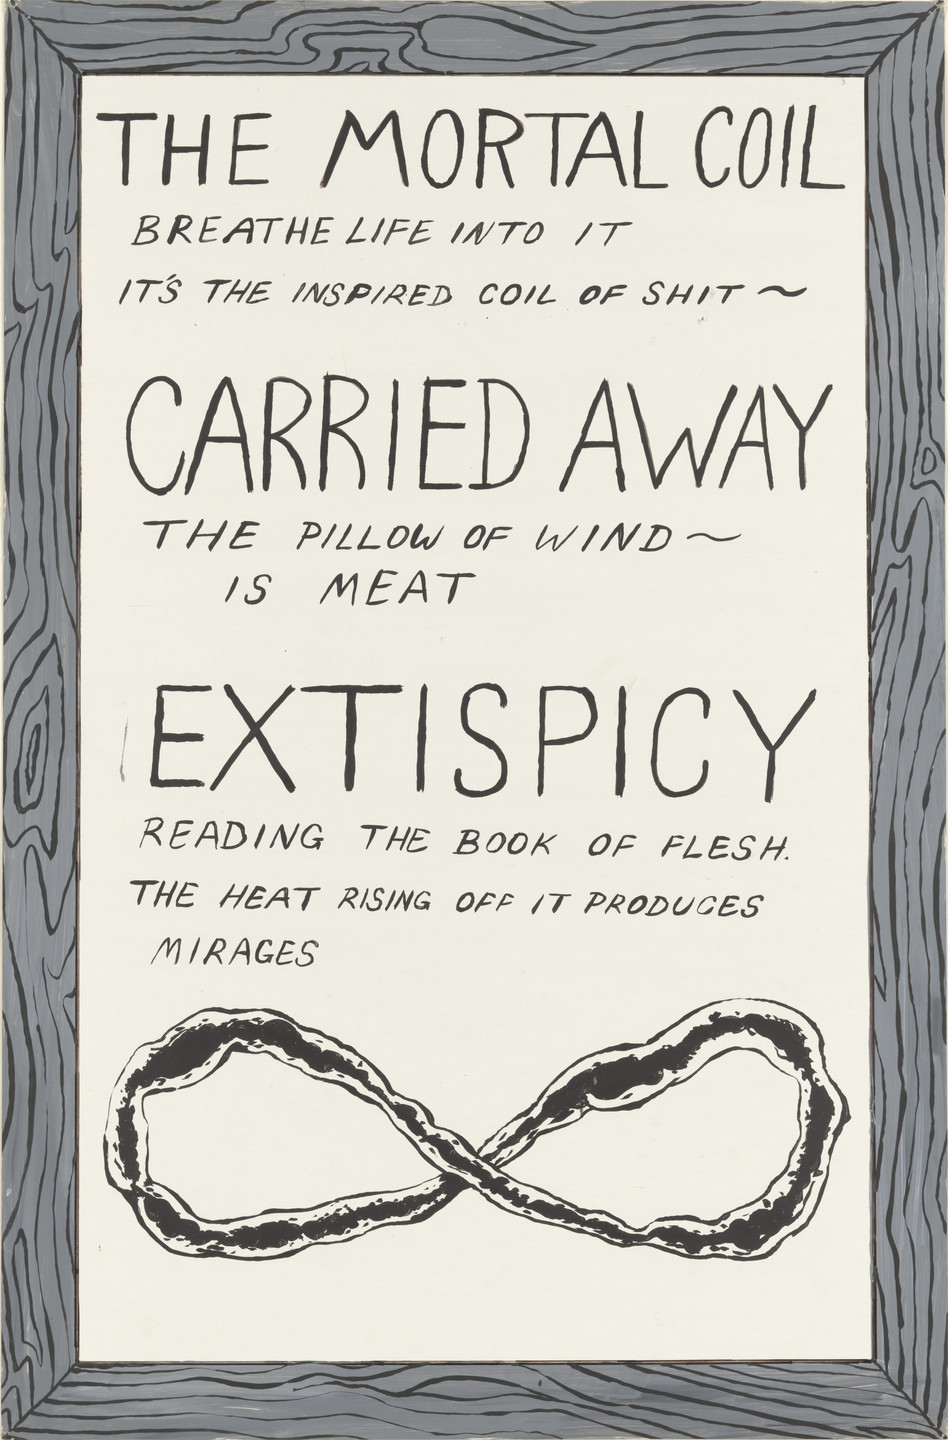 THE MORTAL COIL
BREATHE LIFE INTO IT
IT'S THE INSPIRED COIL OF SHIT ~
CARRIED AWAY
THE PILLOW OF WIND ~
IS MEAT
EXTISPICY
READING THE BOOK OF FLESH.
THE HEAT RISING OFF IT PRODUCES
MIRAGES